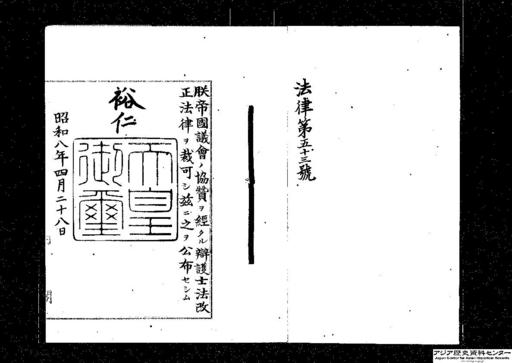 法律第五十三號
朕帝國議會ノ協贊ヲ經タル辯護士法改
正法律ヲ裁可シ茲ニ之ヲ公布セシム
裕仁
天皇
御璽
昭和八年四月二十八日
アジア歴史資料センター
Japan Center for Asian Historical Records